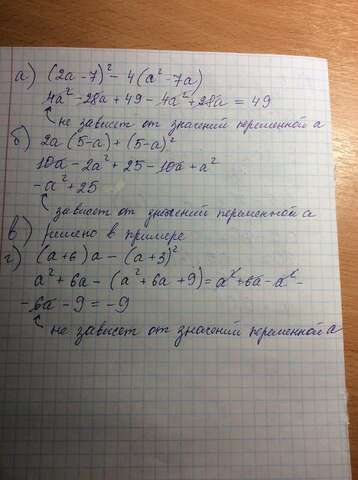 а) (2a-7)² - 4(a² - 7a)
4a² - 28a + 49 - 4a² + 28a = 49
не зависет от значений переменной a
б) 2a(5-a) + (5-a)²
10a - 2a² + 25 - 10a + a²
-a² + 25
зависет от значений переменной a
в) решено в примере
г) (a+6)a - (a+3)²
a² + 6a - (a² + 6a + 9) = a² + 6a - a² -
- 6a - 9 = -9
не зависет от значений переменной a